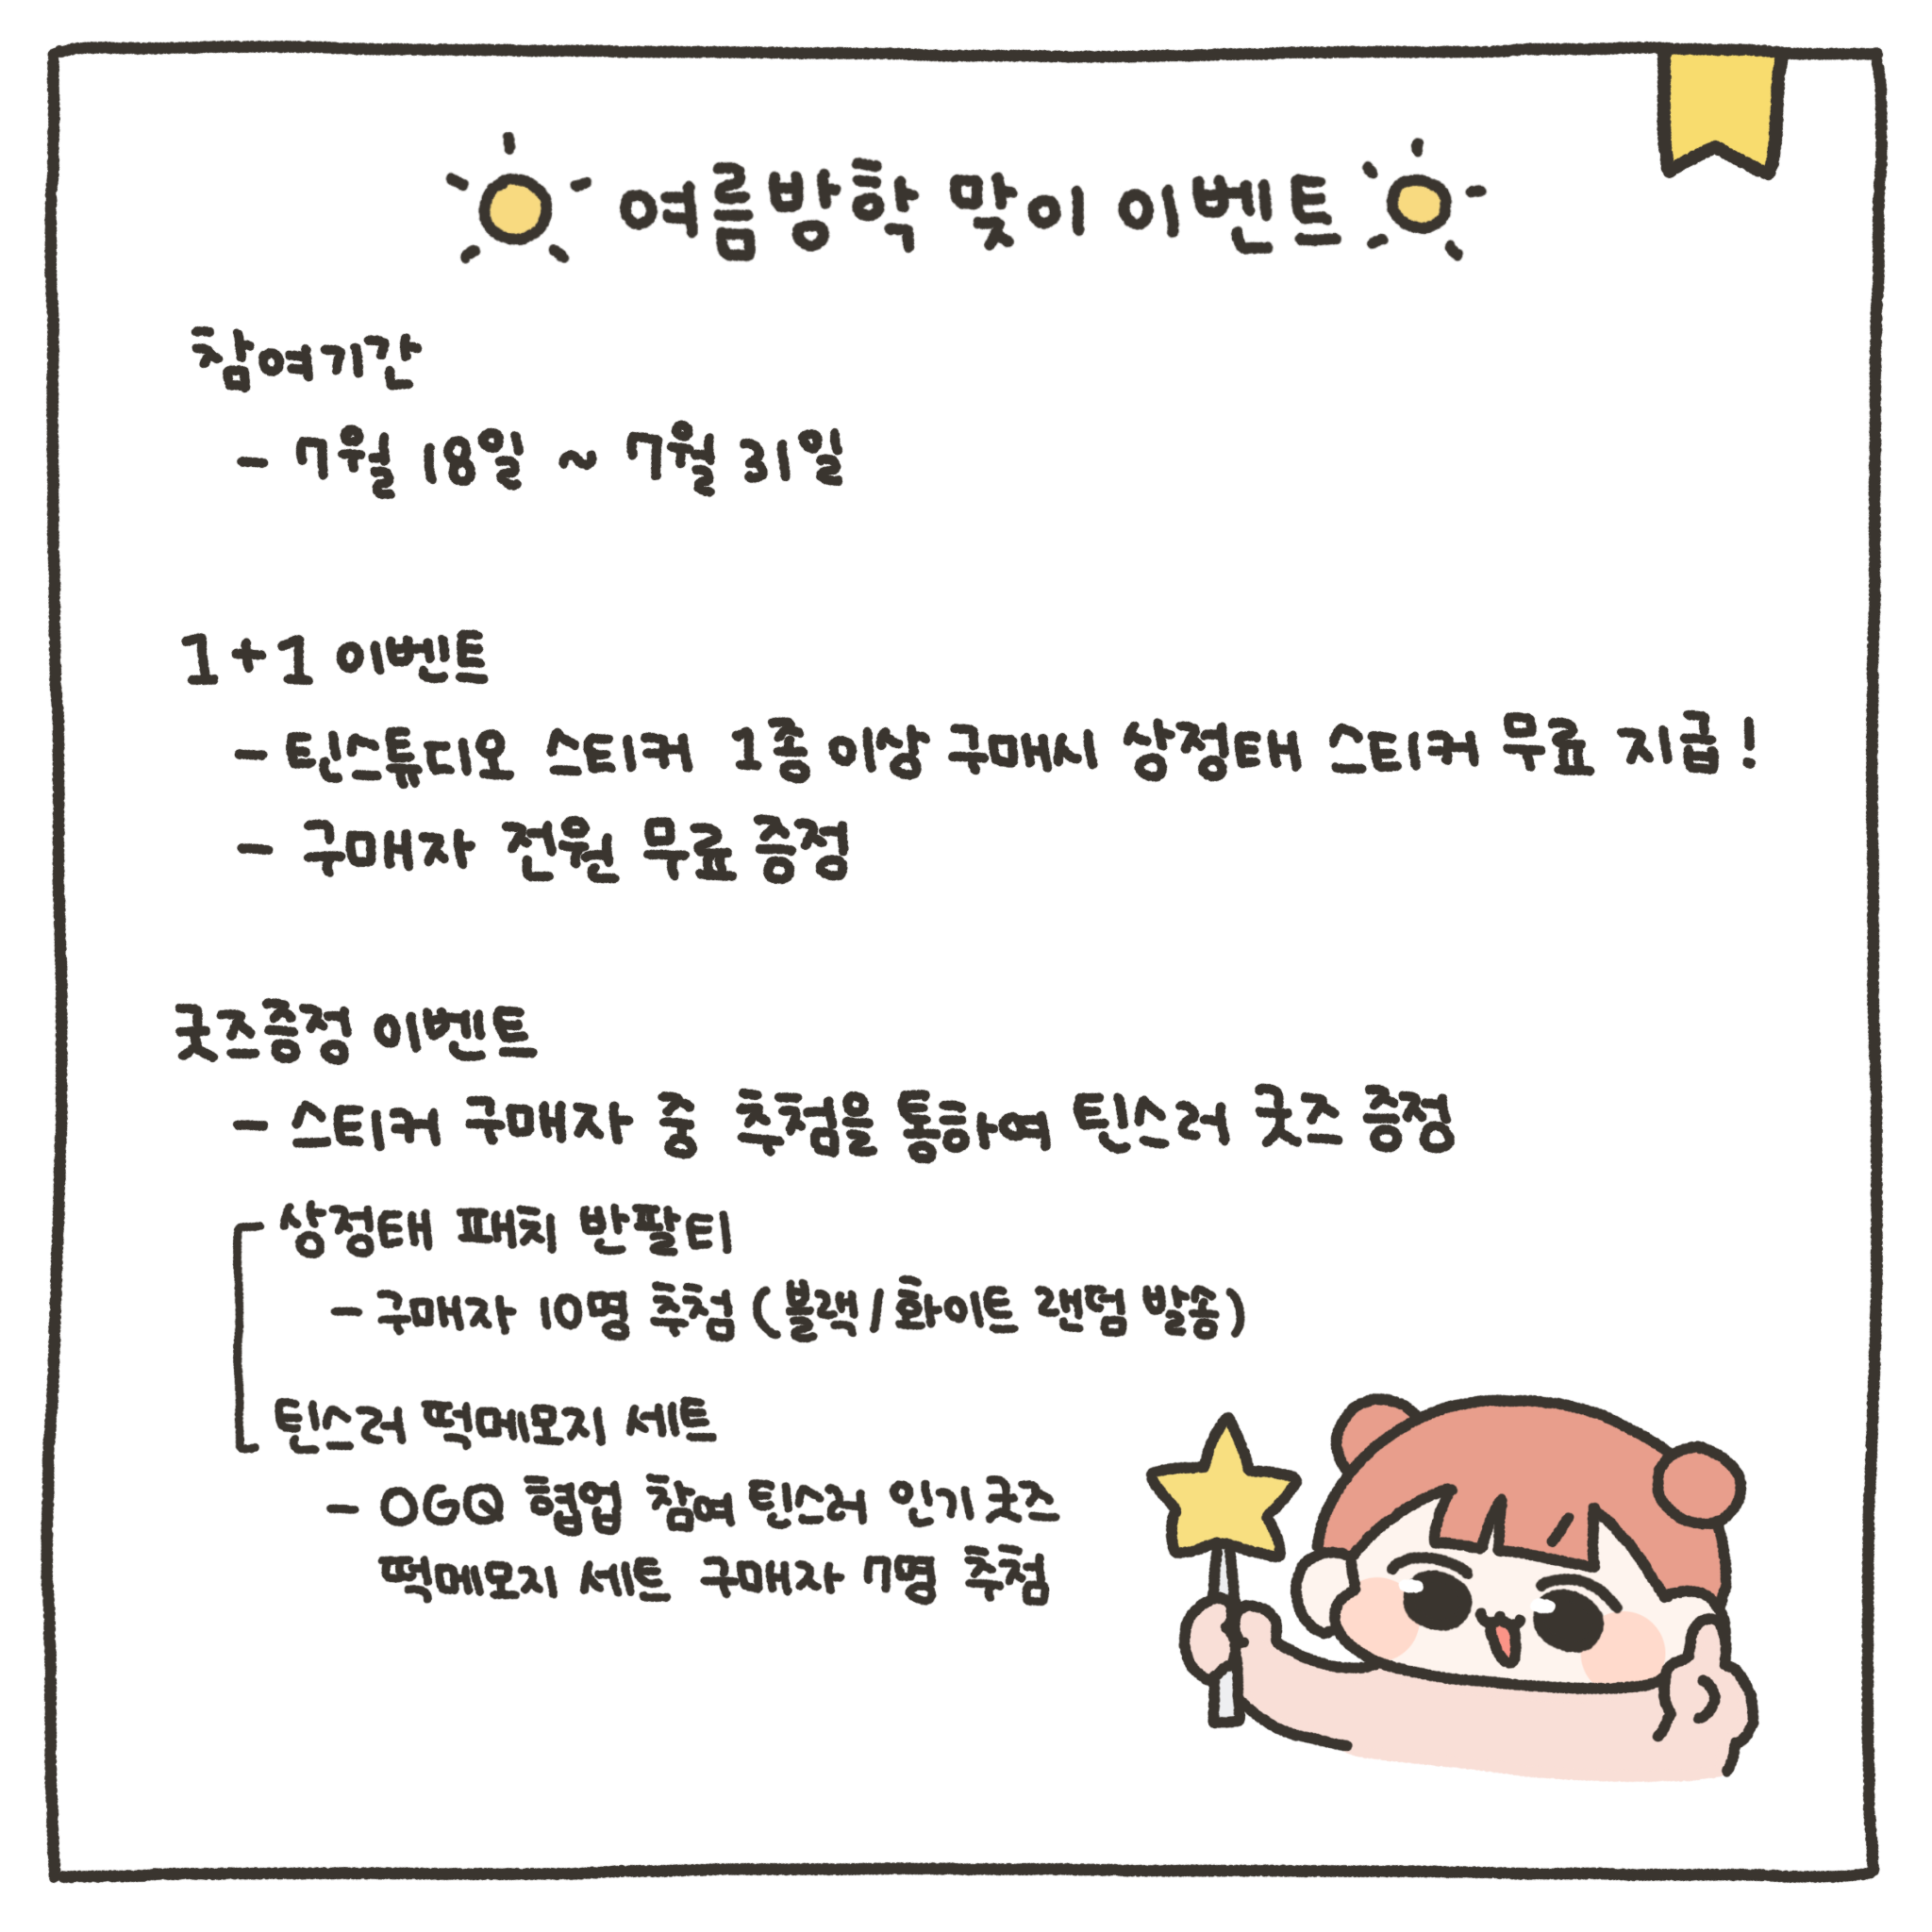 여름방학 맞이 이벤트
참여기간
- 7월 18일 ~ 7월 31일
1+1 이벤트
- 틴스튜디오 스티커 1종 이상 구매시 상정태 스티커 무료 지급!
- 구매자 전원 무료 증정
굿즈증정 이벤트
- 스티커 구매자 중 추첨을 통하여 틴스러 굿즈 증정
상정태 패치 반팔티
- 구매자 10명 추첨 (블랙/화이트 랜덤 발송)
틴스러 떡메모지 세트
- OGQ 협업 참여 틴스러 인기굿즈
떡메모지 세트 구매자 7명 추첨